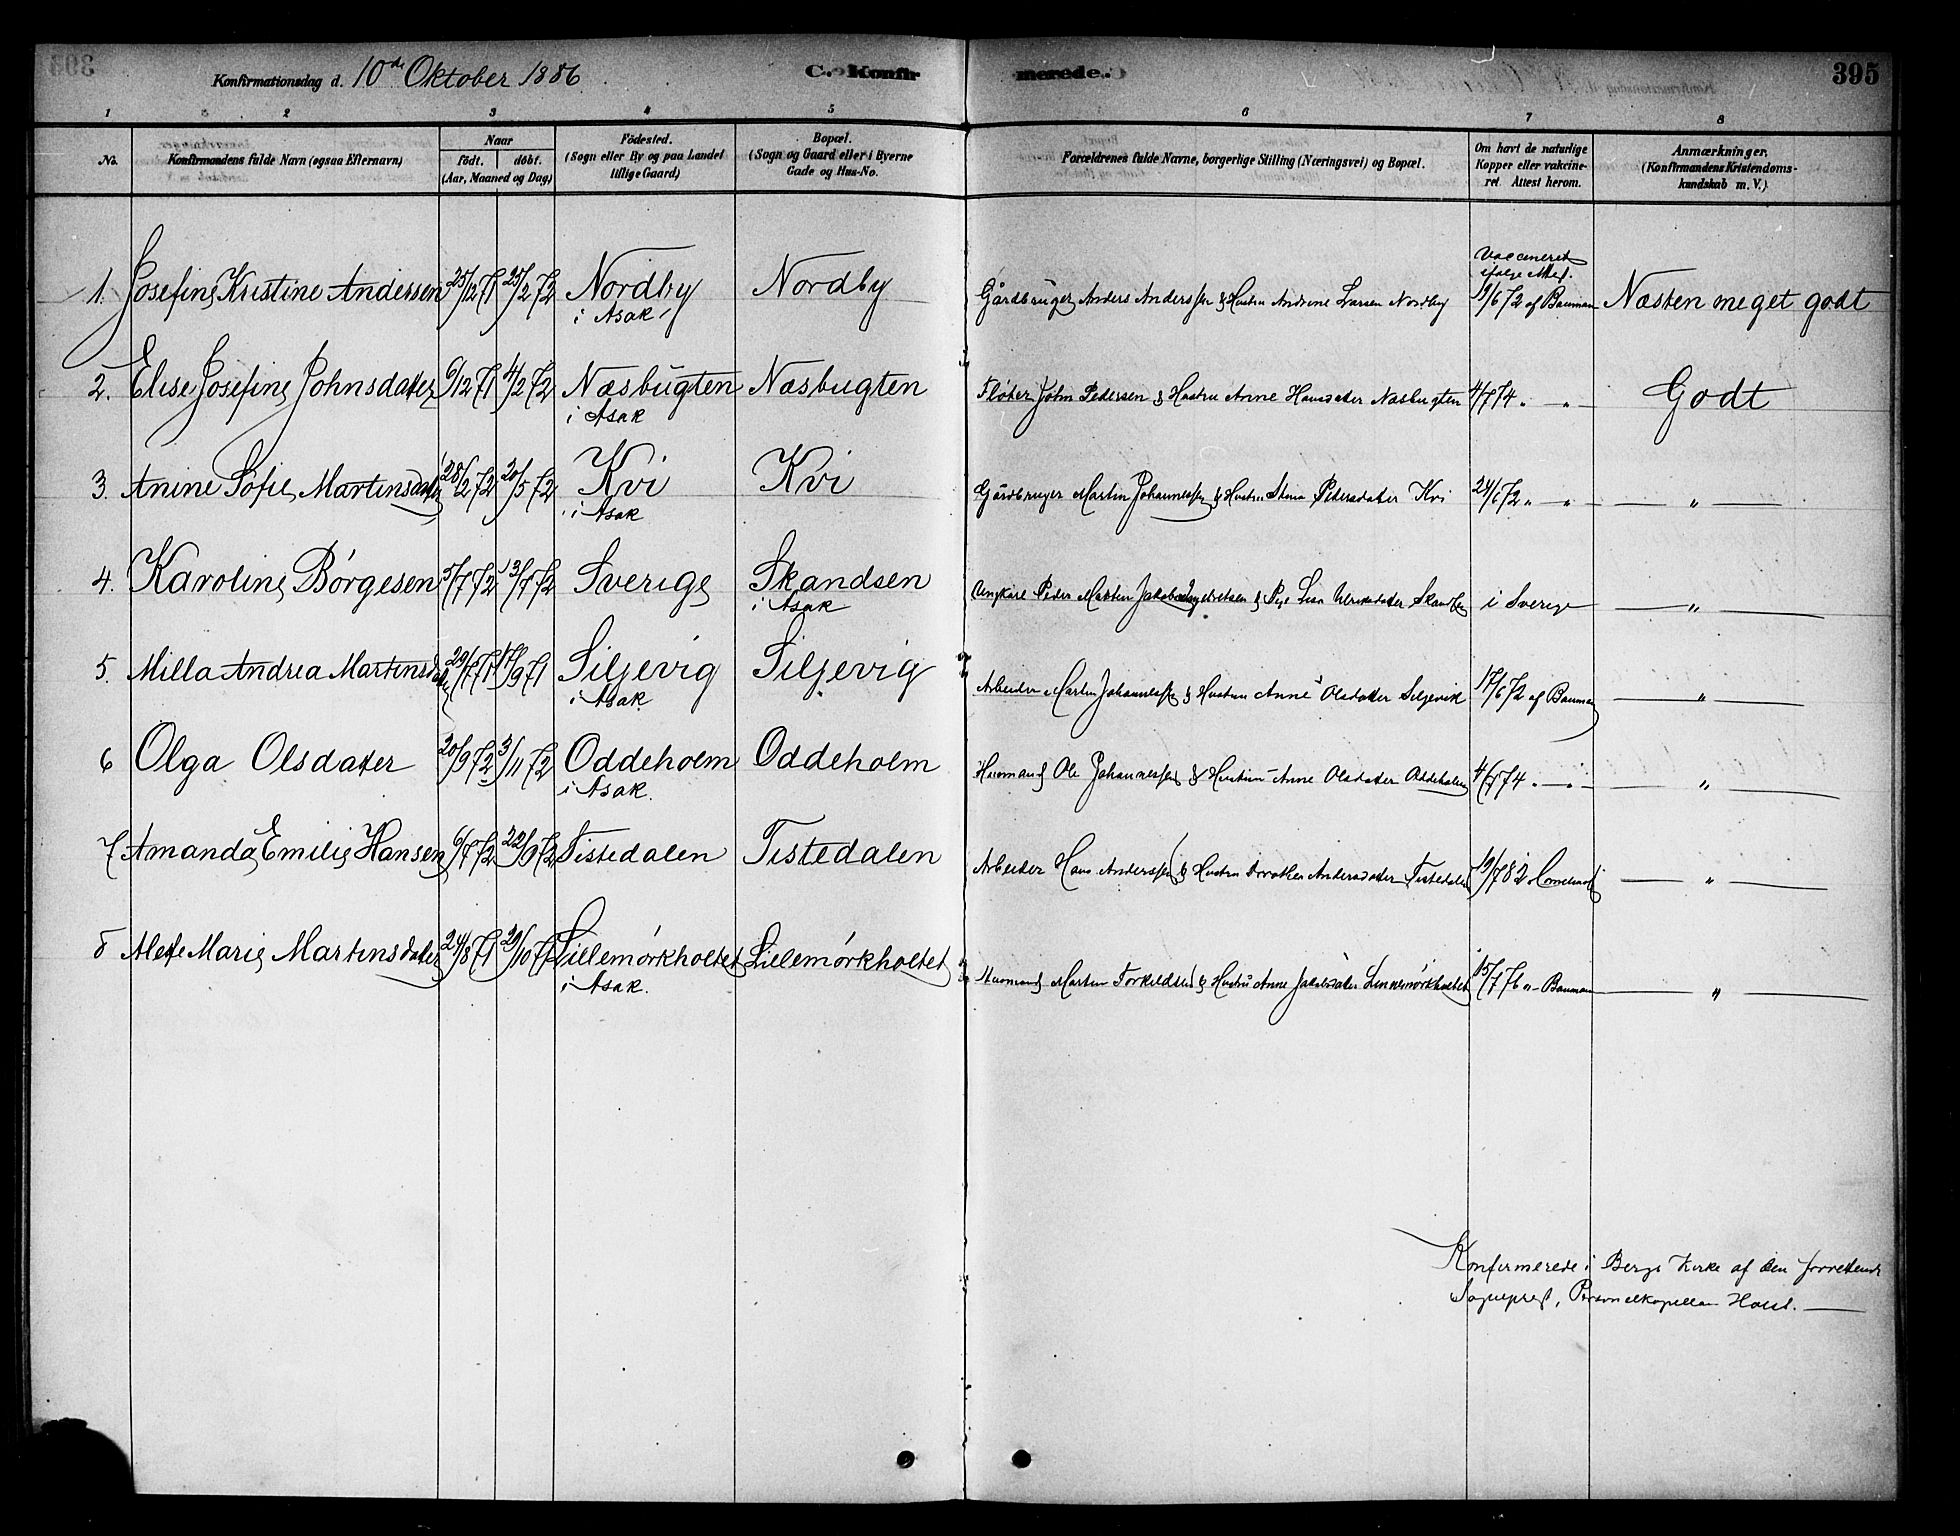 Konfirmationsdag d. 10de Oktober 1886.
C. Konfirmerede.
395
1 2 3 4 5 6 7 8
No.
Konfirmandens fulde Navn (ogsaa Efternavn)
Naar
födt. döbt.
(Aar, Maaned og Dag)
Födested.
(Sogn eller By og paa Landet
tillige Gaard)
Bopæl.
(Sogn og Gaard eller i Byerne
Gade og Hus-No.
Forældrenes fulde Navne, borgerlige Stilling (Næringsvei) og Bopæl.
Om havt de naturlige
Kopper eller vakcine-
ret. Attest herom.
Anmærkninger.
(Konfirmandens Kristendoms-
kundskab m. V.)
Vaccineret
ifølge Attest.
1. Josefine Kristine Andersen 25/12 71 25/2 72 Nordby Nordby Gårdbruger Anders Anderssen & Hustru Andrine Larsen Nordby 19/6 72 af Bauman Næsten meget godt
i Asak
2. Elise Josefine Johnsdatter 6/12 71 4/2 72 Næsbugten Næsbugten Fløter John Pedersen & Hustru Anne Hansdatter Næsbugten 4/7 74 " — " — Godt
i Asak
3. Anine Sofie Martinsdatter 28/2 72 20/5 72 Kvi Kvi Gårdbruger Martin Johannessen & Hustru Stina Pedersdatter Kvi 24/6 72 " — " — "
i Asak
4. Karoline Börgesen 5/7 72 13/7 72 Sverige Skandsen Ungkarl Peder Martin & Pige Lisa i Sverige — " —
i Asak
5. Milla Andrea Martinsdatter 29/7 71 17/9 71 Siljevig Siljevig Arbeider Martin Johannessen & Hustru Anne Olsdatter Siljevik 17/6 72 af Bauman — " —
i Asak
6 Olga Olsdatter 20/9 72 3/11 72 Oddeholm Oddeholm Husmand Ole Johannessen & Hustru Anne Olsdatter Oddeholm 4/7 74 " — " — "
i Asak.
7 Amanda Emilie Hansen 6/7 72 22/9 72 Tistedalen Tistedalen Arbeider Hans Anderssen & Hustru Dorothea Andersdatter Tistedalen 19/7 82 — " —
8 Alette Marie Martinsdatter 24/8 71 29/10 71 Lillemørkholtet Lillemørkholtet Husmand Martin Torkildsen & Hustru Anne Jakobsdatter 15/7 76 " Bauman — " —
i Asak.
Konfirmerede i Bergs Kirke af den forrettende
Sogneprest, Personelkapellan Holst. —